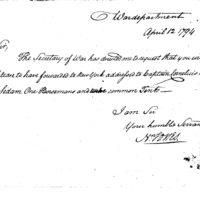 War department
April 12 1794
Sir,
The Secretary of War has directed me to request that you will
please to have forwarded to New York addressed to Captain Cornelius
One Horsemans and common Tents
I am Sir
Your humble Servant